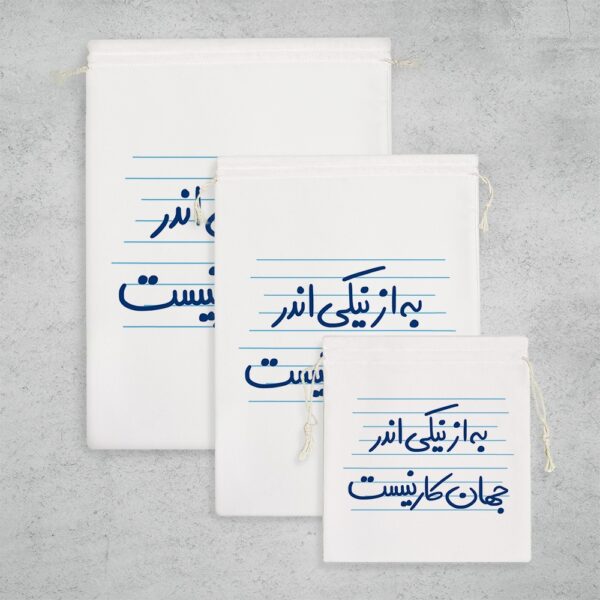 اندر
نیست
به از نیکی اندر
نیست
به از نیکی اندر
جهان کار نیست